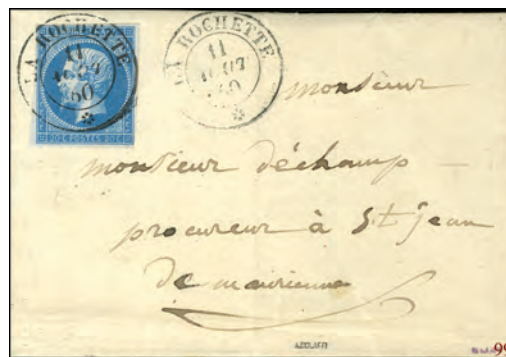 LA ROCHETTE
11
AOUT
60
LA ROCHETTE
11
AOUT
60
20C POSTES 20C
monsieur
monsieur déchamp
procureur à St jean
de maurienne
99